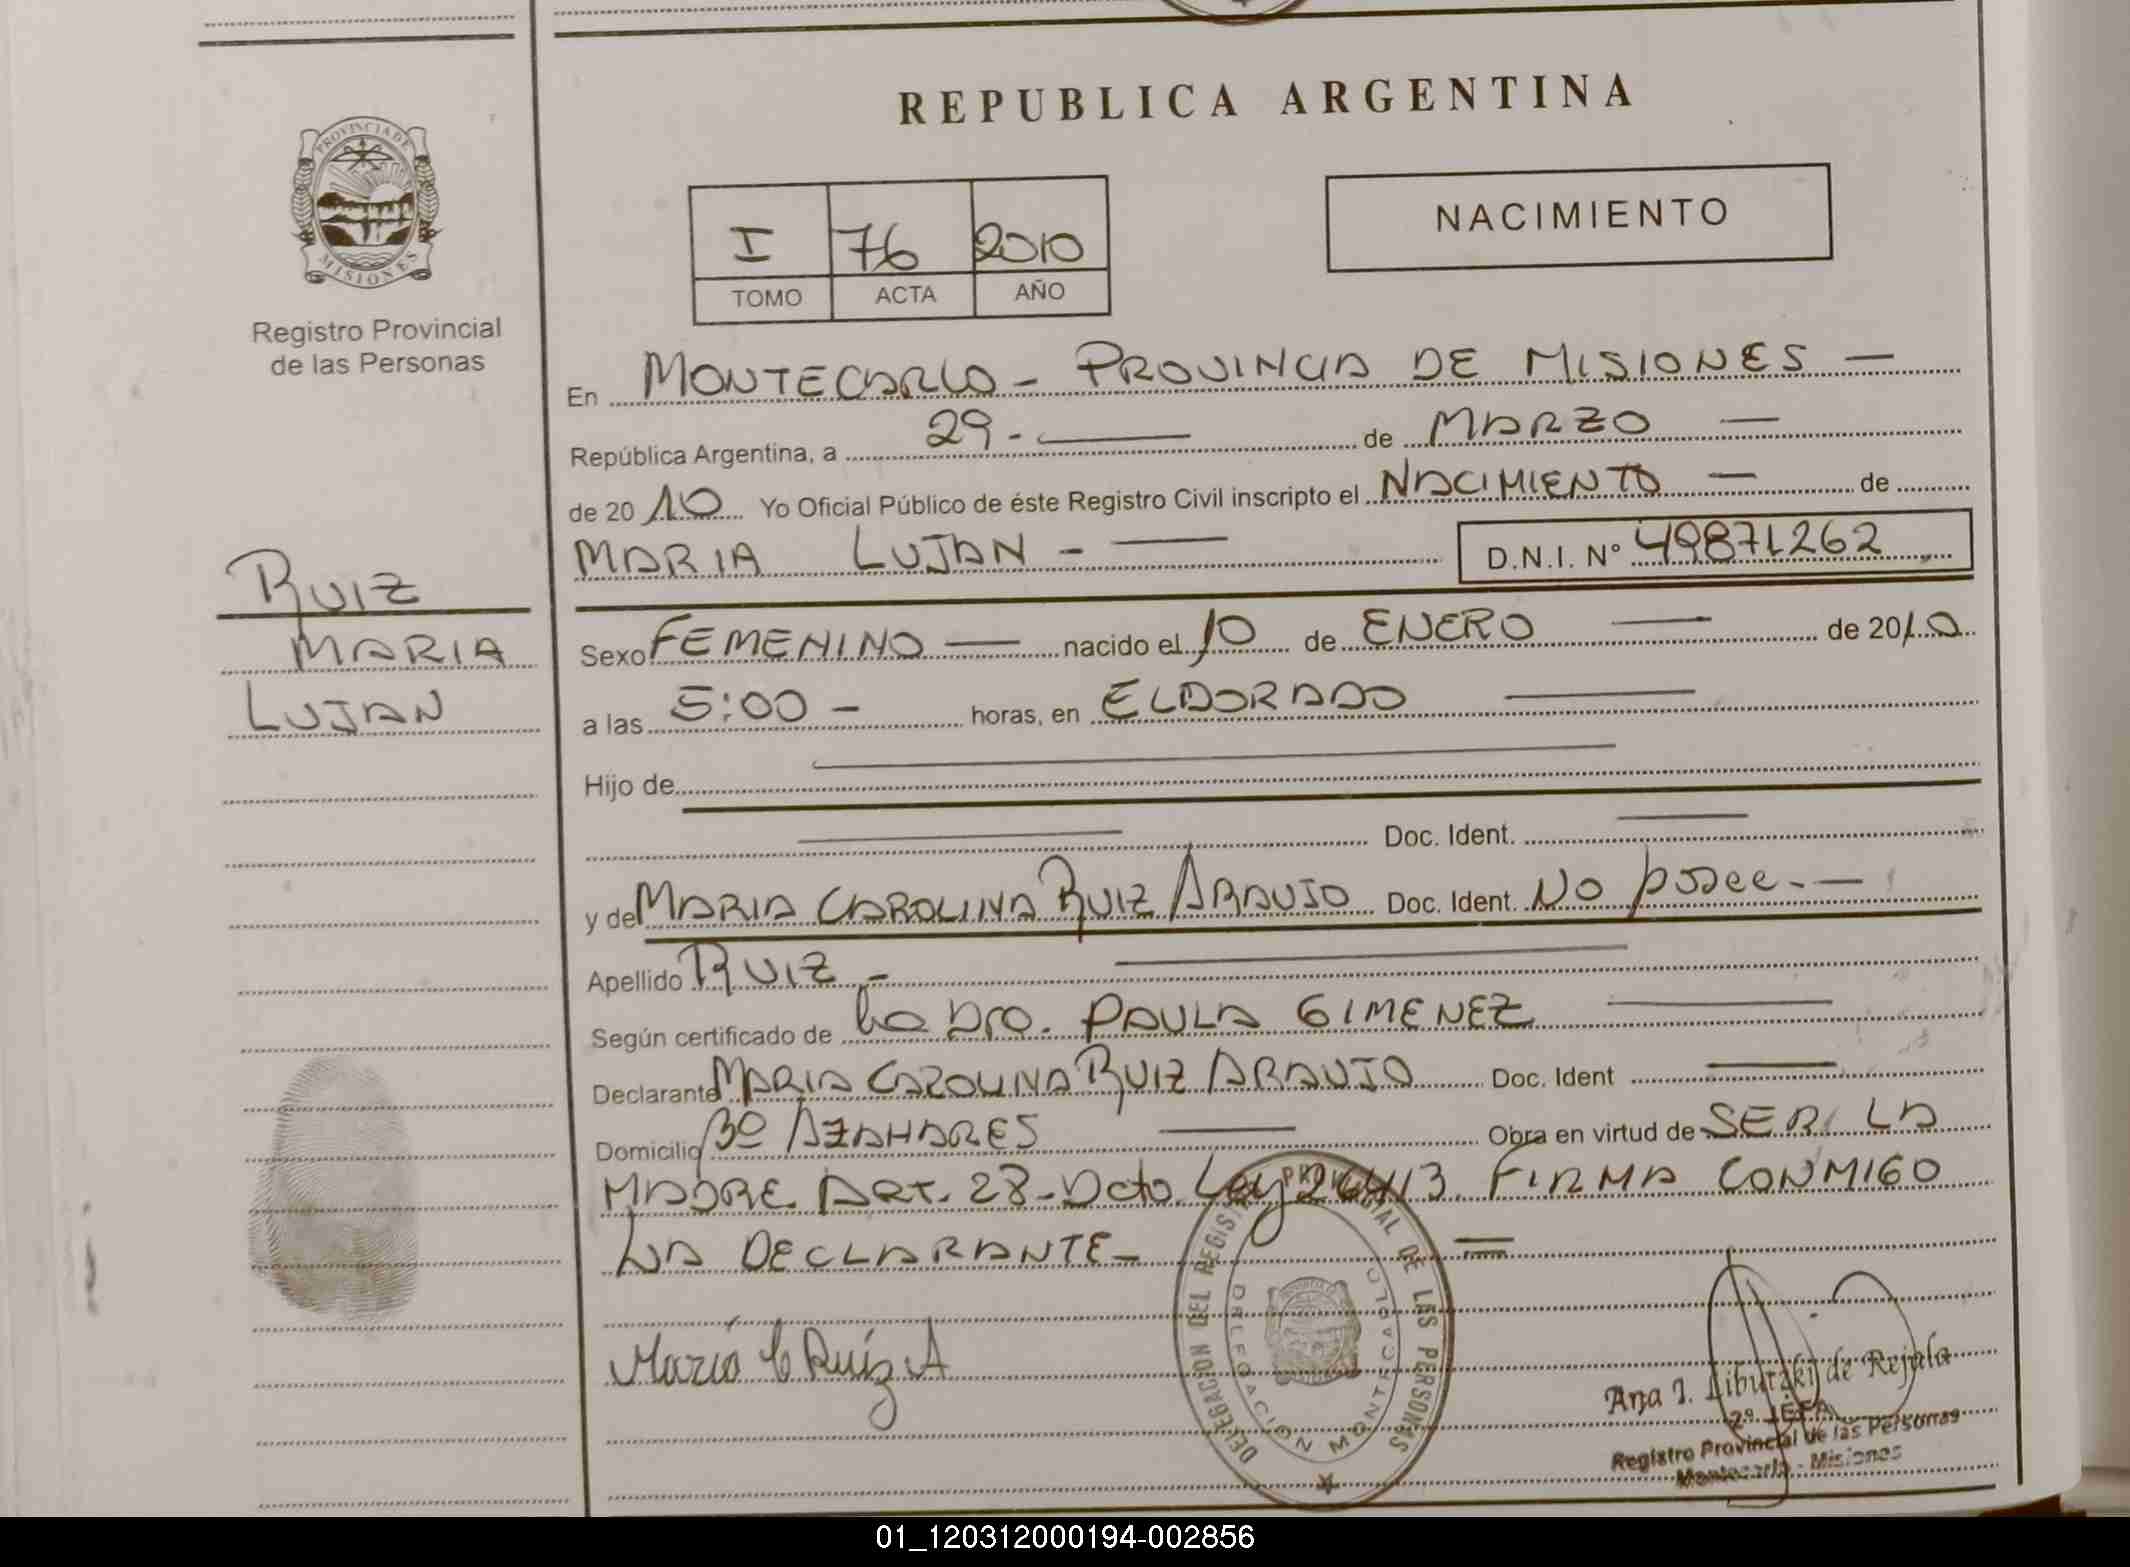 REPUBLICA ARGENTINA
PROVINCIA DE
MISIONES
Registro Provincial
de las Personas
I 76 2010
TOMO ACTA AÑO
NACIMIENTO
En MONTECARLO - PROVINCIA DE MISIONES —
República Argentina, a 29 - — de MARZO —
de 20 10 Yo Oficial Público de éste Registro Civil inscripto el NACIMIENTO — de
MARIA LUJAN - — D.N.I. N° 49871262
RUIZ
MARIA
LUJAN
Sexo FEMENINO — nacido el 10 de ENERO — de 2010
a las 5:00 - horas, en ELDORADO —
Hijo de —
— Doc. Ident. —
y de MARIA CAROLINA RUIZ ARAUJO Doc. Ident. No posee. —
Apellido RUIZ - —
Según certificado de la Dra. PAULA GIMENEZ —
Declarante MARIA CAROLINA RUIZ ARAUJO Doc. Ident —
Domicilio Bº AZAHARES — Obra en virtud de SER LA
MADRE ART. 28 - Dcto Ley 26413. FIRMA CONMIGO
LA DECLARANTE - —
Maria C Ruiz A
DELEGACION DEL REGISTRO PROVINCIAL DE LAS PERSONAS
DELEGACION MONTECARLO
Ana I. Libutzki de Rejala
2º JEFA
Registro Provincial de las Personas
Montecarlo - Misiones
01_120312000194-002856